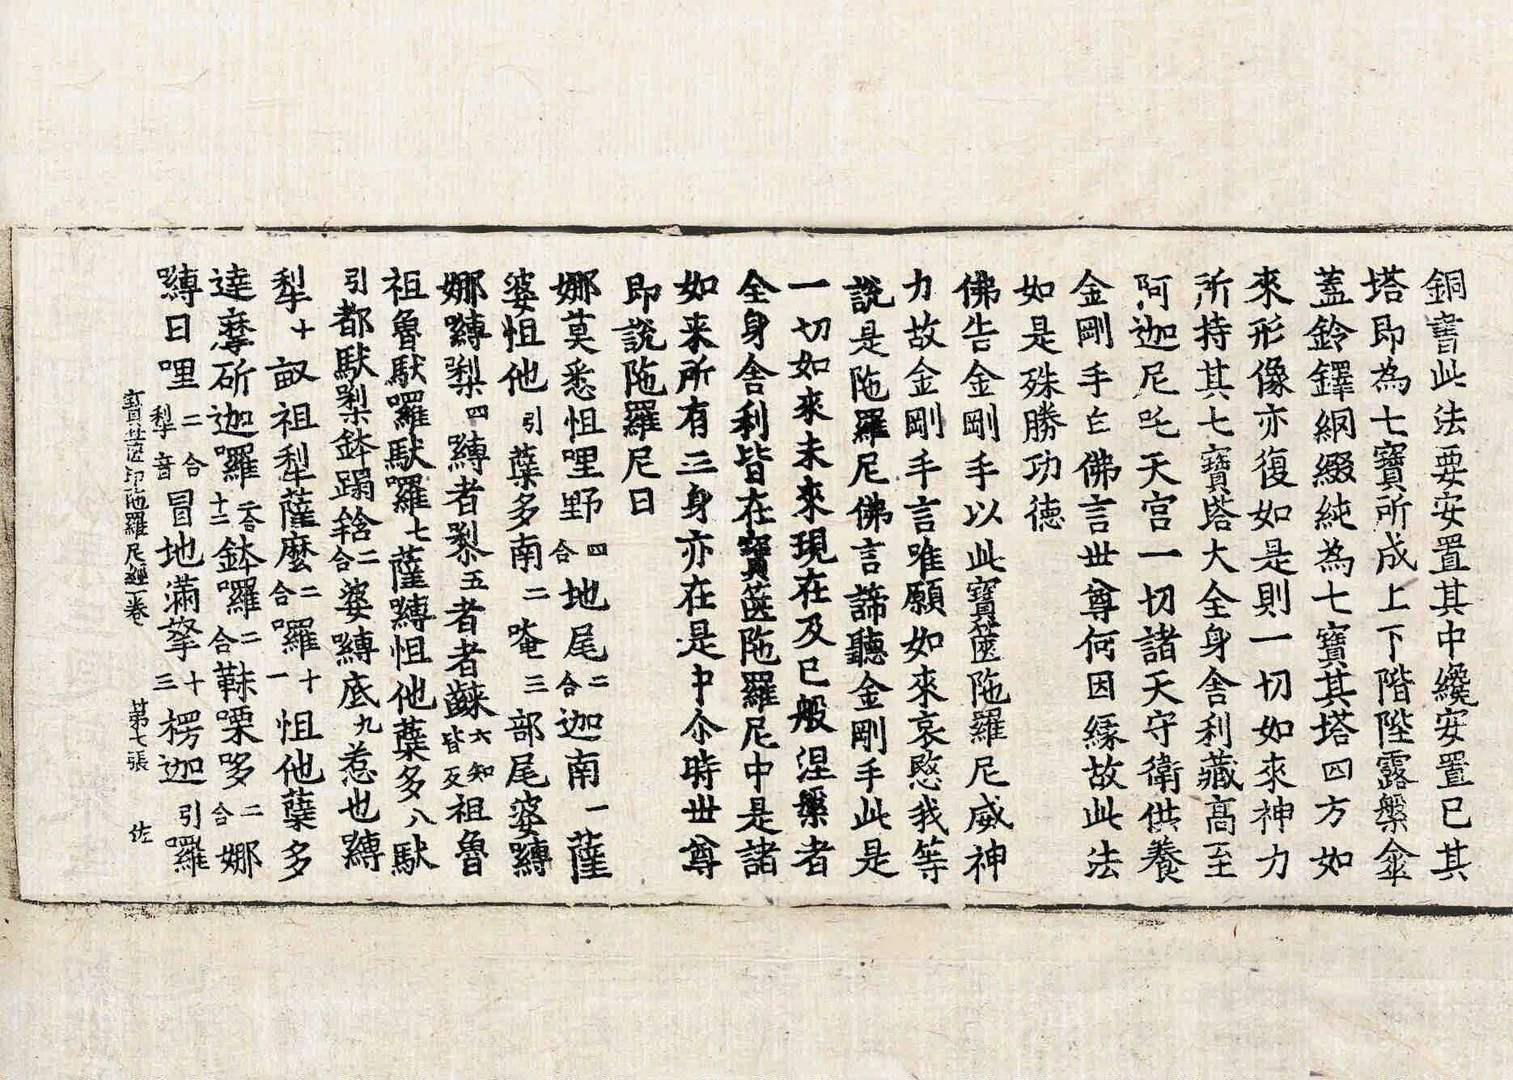 銅書此法要安置其中纔安置已其
塔即為七寶所成上下階陛露槃傘
蓋鈴鐸綱綴純為七寶其塔四方如
來形像亦復如是則一切如來神力
所持其七寶塔大全身舍利藏高至
阿迦尼吒天宮一切諸天守衛供養
金剛手白佛言世尊何因緣故此法
如是殊勝功德
佛告金剛手以此寶篋陁羅尼威神
力故金剛手言唯願如來哀愍我等
說是陁羅尼佛言諦聽金剛手此是
一切如來未來現在及已般涅槃者
全身舍利皆在寶篋陁羅尼中是諸
如来所有三身亦在是中尒時世尊
即說陁羅尼曰
娜莫悉怛哩野四合地尾二合迦南一薩
婆怛他引蘗多南二唵三部尾婆嚩
娜嚩梨四嚩者梨五者者齼六知皆反祖魯
祖魯馱囉馱囉七薩嚩怛他蘗多八馱
引都馱梨鉢蹋二合婆嚩底九惹也嚩
犁十畝祖犁薩麼二合囉十一怛他蘗多
達摩斫迦囉十二鉢囉二合靺㗚二合哆娜
嚩日哩二合犁音冒地滿拏十三楞迦引囉
寶篋印陁羅尼經一卷 第七張 佐